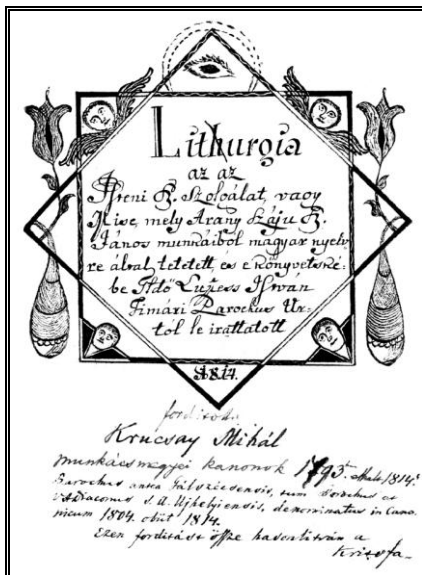 Lithurgia
az az
Isteni Sz. Szolgálat, vagy
Mise, mely Arany Száju Sz.
János munkáiból magyar nyelv
re által tetetett, és e könyvetské-
be Adó István
Timári Parochus Ur-
tól le irattatott
1814.
fordította
Krucsay Mihál
munkácsmegyei kanonok 1793 1814
Parochus antea Gálszécsensis, tum Parochus et
VADiaconus S. A. Ujhelyiensis, denominatus in Cano
nicum 1804. obiit 1814.
Ezen fordítást össze hasonlitván a